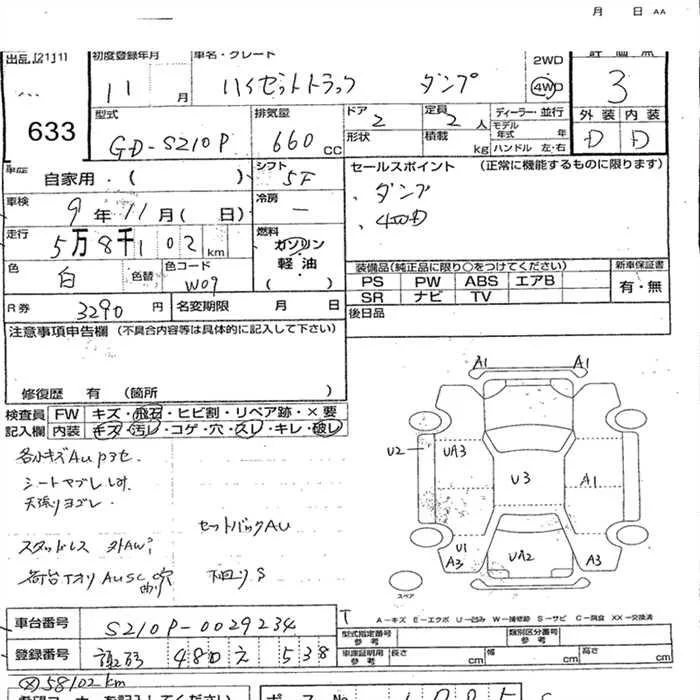 月 日 AA
出品
初度登録年月 11 月
車名・グレード ハイゼットトラック ダンプ
2WD
4WD
評価点 3
633
型式 GD-S210P
排気量 660 CC
ドア 2
形状
定員 2 人
積載 kg
ディーラー・並行
モデル年式 年
ハンドル 左・右
外装 内装
D D
車歴 自家用・( )
シフト 5F
車検 9年11月( 日)
冷房 ー
走行 5万8千102km
燃料 ガソリン
軽油
( )
色 白 色替
色コード W09
R券 3290円
名変期限 月 日
セールスポイント (正常に機能するものに限ります)
・ダンプ
・4WD
装備品(純正品に限り○をつけてください)
PS PW ABS エアB
SR ナビ TV
新車保証書
有・無
後日品
注意事項申告欄 (不具合内容等は具体的に記入して下さい)
修復歴 有 (箇所 )
検査員 FW キズ・飛石・ヒビ割・リペア跡・×要
記入欄 内装 キズ・汚レ・コゲ・穴・スレ・キレ・破レ
シートヤブレ
天張りヨゴレ
セットバックAU
スタッドレス
下回りS
A1 A1
U2 UA3 U3 A1
U1 A3 UA2 A3
スペア
A-キズ E-エクボ U-凹み W-補修跡 S-サビ C-腐食 XX-交換済
車台番号 S210P-0029234
登録番号 480 え 538
型式指定番号 参考
類別区分番号 参考
車庫証明用 参考 長さ cm 幅 cm 高さ cm
58102km